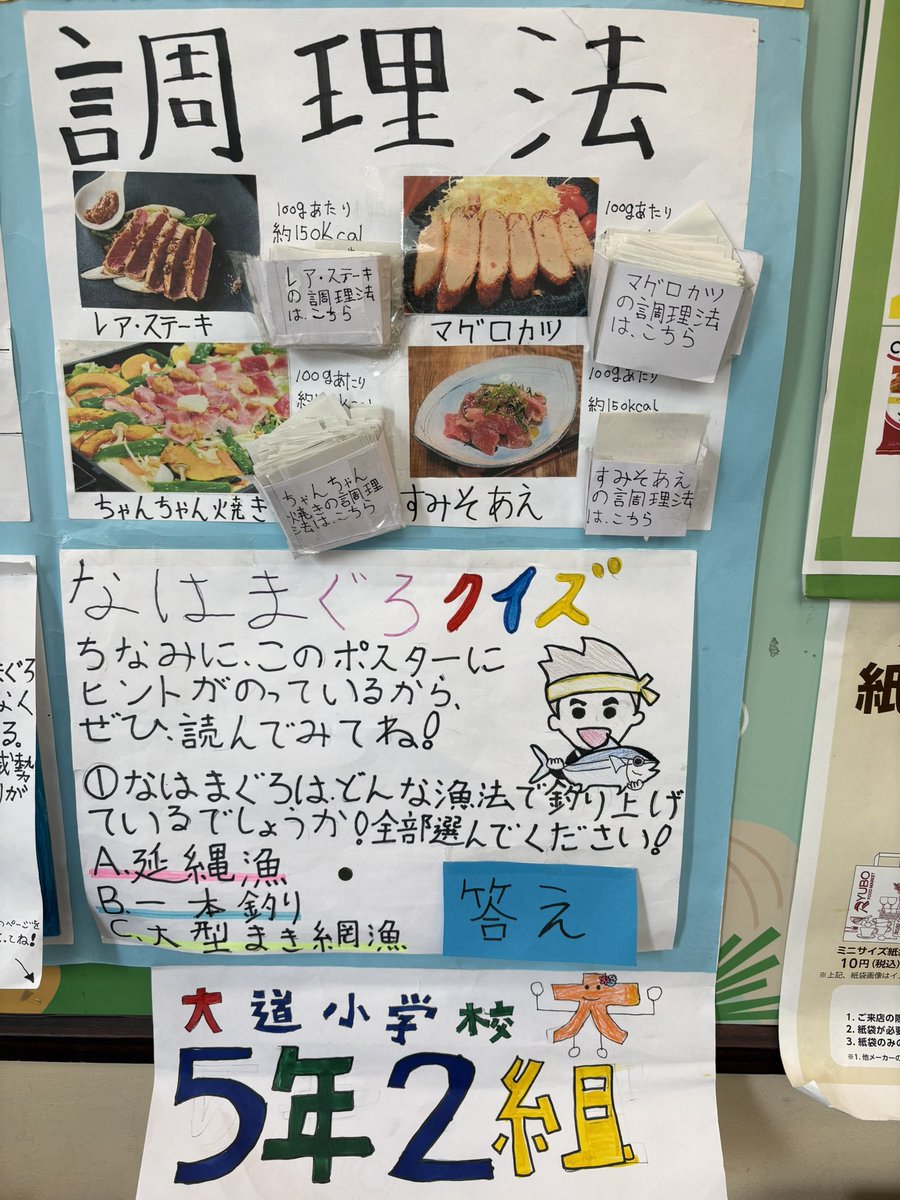 調理法
100gあたり
約150Kcal
レア・ステーキ
の調理法
は、こちら
レア・ステーキ
100gあたり
マグロカツ
の調理法
は、こちら
マグロカツ
100gあたり
ちゃんちゃん
焼きの調理
法は、こちら
ちゃんちゃん焼き
100gあたり
約150kcal
すみそあえ
の調理法
は、こちら
すみそあえ
なはまぐろクイズ
ちなみに、このポスターに
ヒントがのっているから、
ぜひ、読んでみてね!
①なはまぐろは、どんな漁法で釣り上げ
ているでしょうか!全部選んでください!
A.延縄漁
B.一本釣り
C.大型まき網漁
答え
大道小学校
大
5年2組
まぐろ
なく
る。
のページを
てね!
紙
RYUBO
FOOD MARKET
ミニサイズ紙
10円(税込)
※上記、紙袋画像はイ
1. ご来店の際
2. 紙袋が必要
3. 紙袋のみの
※1. 他メーカーの